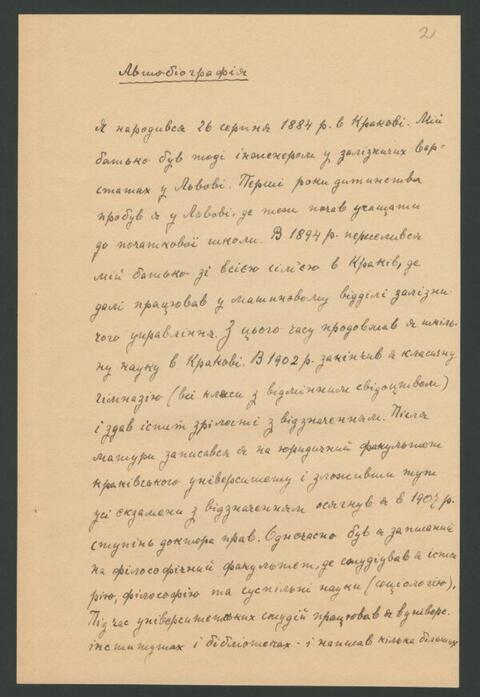 2
Автобіографія
Я народився 26 серпня 1884 р. в Кракові. Мій
батько був тоді інженером у залізничих вар-
статах у Львові. Перші роки дитинства
пробув я у Львові, де теж почав учащати
до початкової школи. В 1894 р. переселився
мій батько зі всією сім'єю в Краків, де
далі працював у машиновому відділі залізни-
чого управління. З цього часу продовжав я шкіль-
ну науку в Кракові. В 1902 р. закінчив я класичну
гімназію (всі класи з відмінним свідоцтвом)
і здав іспит зрілости з відзначенням. Після
матури записався я на юридичний факультет
краківського університету і зложивши тут
усі екзамени з відзначенням осягнув я в 1907 р.
ступінь доктора прав. Одночасно був я записаний
на філософічний факультет, де студіював я істо-
рію, філософію та суспільні науки (соціологію).
Підчас університетських студій працював я в універс.
інститутах і бібліотеках - і написав кілька більших